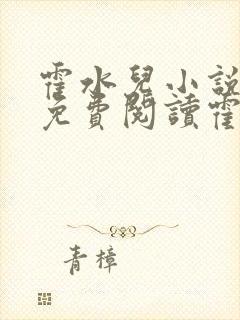 霍水兒小説
免費閱讀霍
青樟